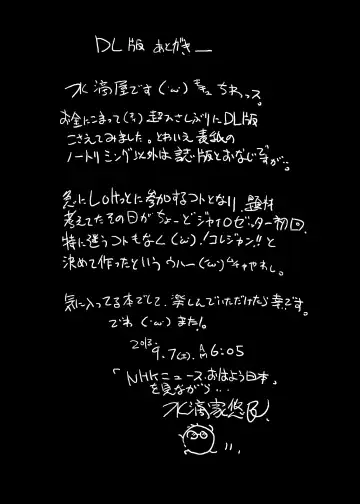 DL版 あとがき
水滴屋です(・ω・) ちわっス。
お金にこまって(え) 超おひさしぶりにDL版
こさえてみました。とわいえ表紙の
ノートリミング以外は誌版とおなじですが。
急に Loltっとに参加するコトとなり、題材
考えてたその日がちょーどジャイロゼッター初回、
特に迷うコトもなく(・ω・)！コレジャン!!と
決めて作ったという
気に入ってる本でして、楽しんでいただけたら幸です。
でわ(・ω・)また！
2013.
9.7(土). AM6:05
「NHKニュースおはよう日本」
を見ながら・・